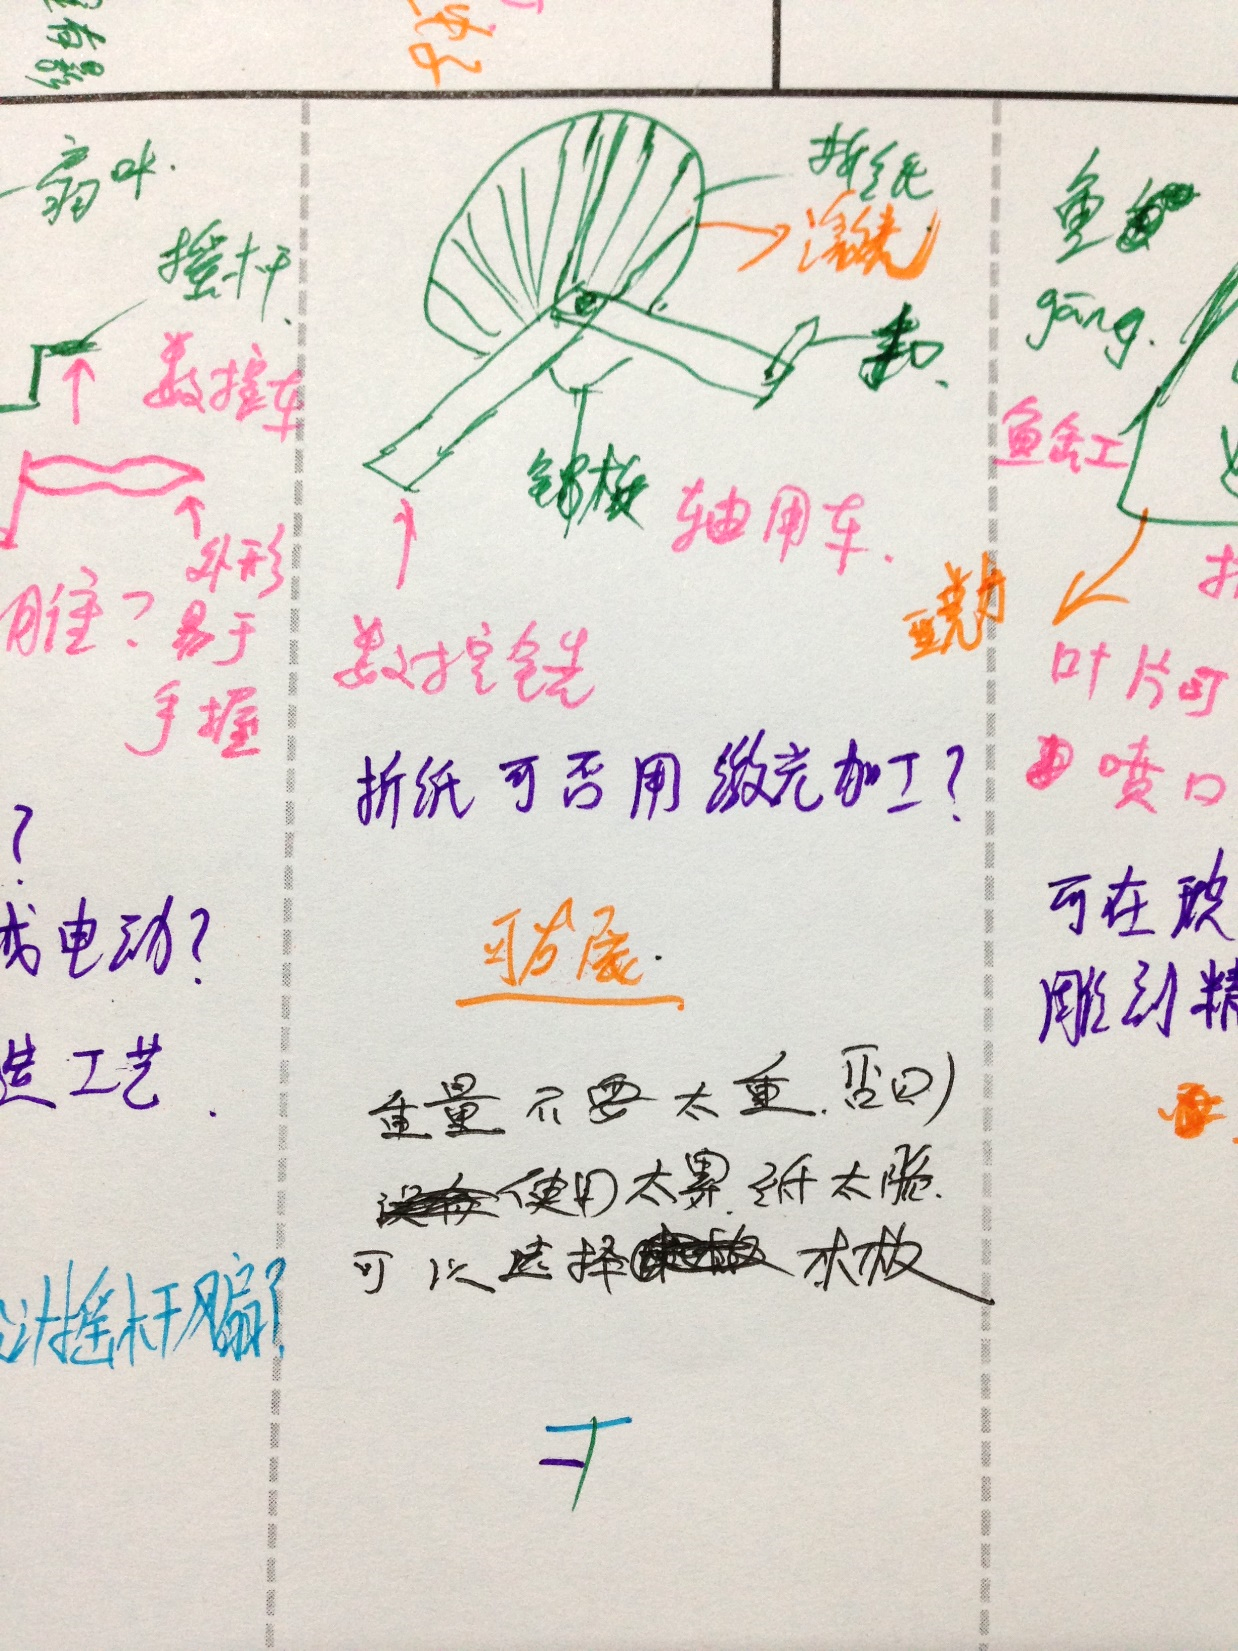 扇叶.
摇杆.
数控车
外形
易于
手握
?
电动?
工艺.
计摇杆风扇?
折纸
激光
扣.
钢板
轴用车.
数控铣
折纸可否用激光加工?
可发展.
重量不要太重.否则
使用太累.纸太脆.
可以选择木板
鱼
gāng.
鱼缸工
亚克力
叶片可
喷口
可在玻
雕刻精